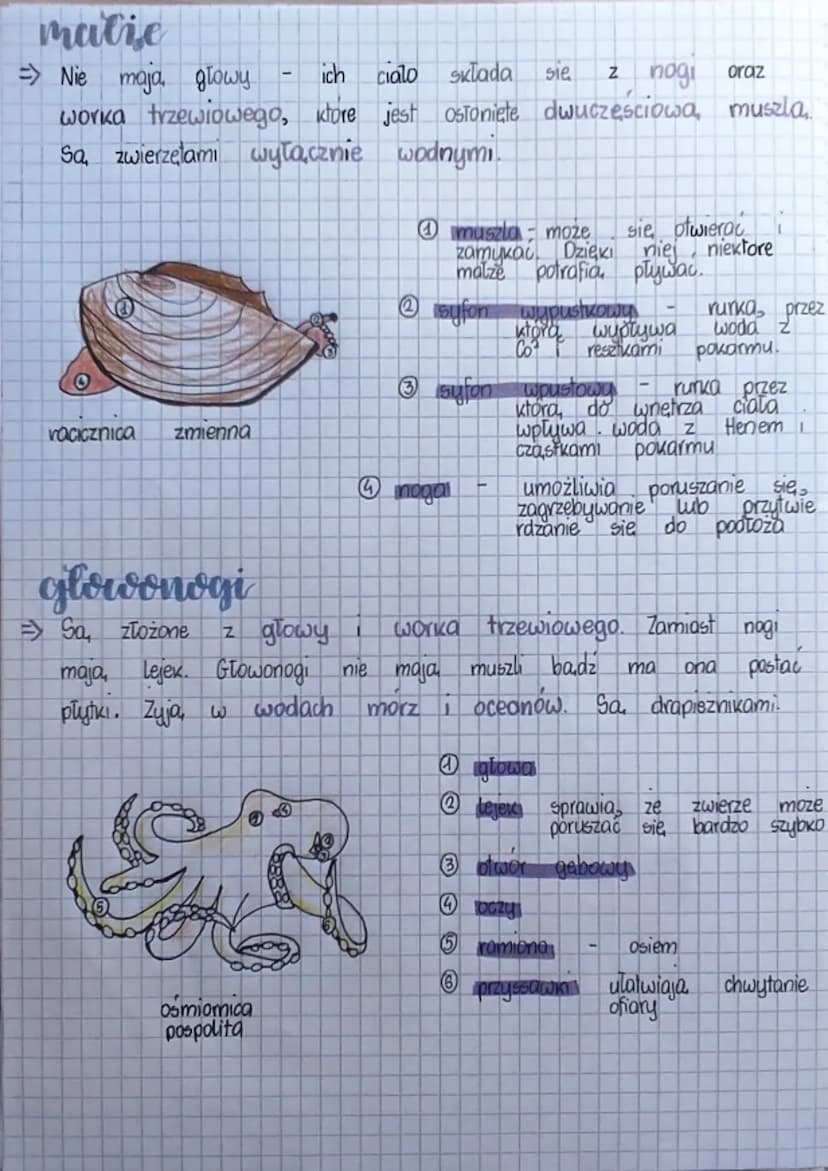 małże
⇒ Nie mają głowy - ich ciało składa się z nogi oraz
worka trzewiowego, które jest osłonięte dwuczęściową muszlą.
Są zwierzętami wyłącznie wodnymi.
① muszla - może się otwierać i
zamykać. Dzięki niej niektóre
małże potrafią pływać.
② syfon wypustkowy - rurka, przez
którą wypływa woda z
Co² i resztkami pokarmu.
③ syfon wpustowy - rurka przez
którą do wnętrza ciała
wpływa woda z tlenem i
cząstkami pokarmu
④ noga - umożliwia poruszanie się,
zagrzebywanie lub przytwie
rdzanie się do podłoża
1
2
3
4
racicznica zmienna
głowonogi
⇒ Są złożone z głowy i worka trzewiowego. Zamiast nogi
mają lejek. Głowonogi nie mają muszli bądź ma ona postać
płytki. Żyją w wodach mórz i oceanów. Są drapieżnikami.
① głowa
② lejek sprawia, że zwierze może
poruszać się bardzo szybko
③ otwór gębowy
④ oczy
⑤ ramiona - osiem
⑥ przyssawki ułatwiają chwytanie
ofiary
5
ośmiornica
pospolita